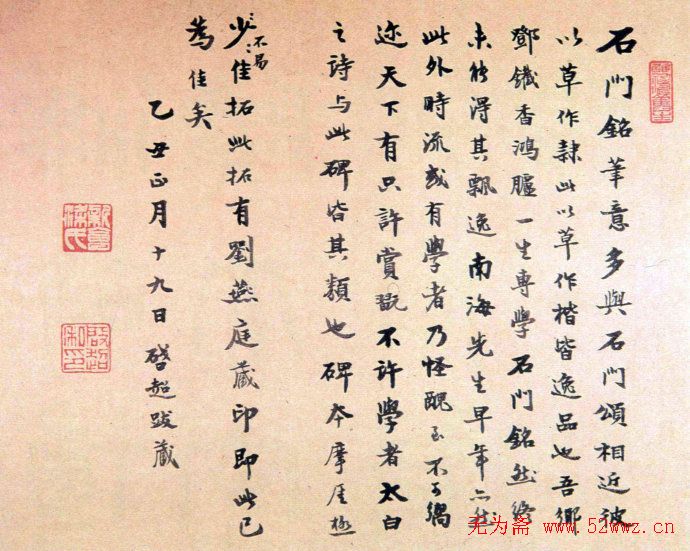 石門銘筆意多與石門頌相近彼
以草作隸此以草作楷皆逸品也吾鄉
鄧鐵香鴻臚一生專學石門銘然終
未能得其飄逸南海先生早年亦然
此外時流或有學者乃怪醜至不可嚮
迩天下有只許賞翫不許學者太白
之詩與此碑皆其類也碑本摩厓極
少不易佳拓此拓有劉燕庭藏印即此已
為佳矣
乙丑正月十九日啓超跋藏
新會梁氏
啟超私印
无为斋 www.52wwz.cn